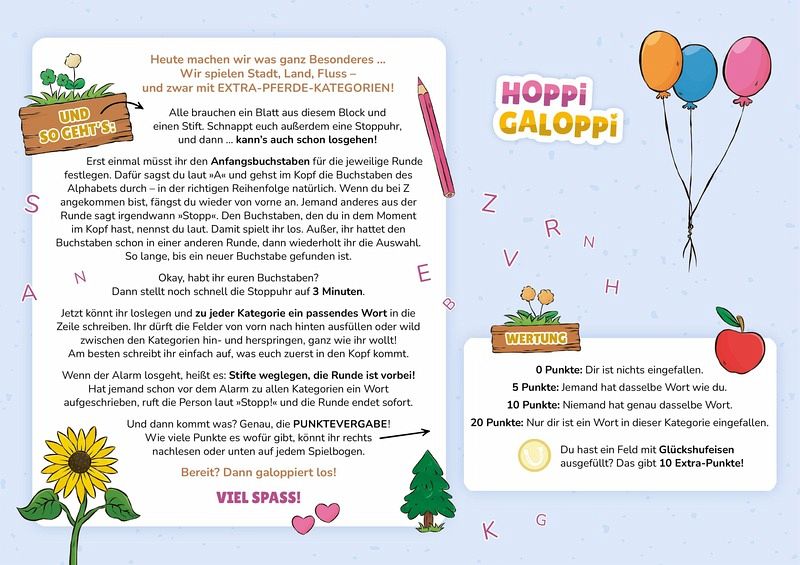 Heute machen wir was ganz Besonderes ...
Wir spielen Stadt, Land, Fluss –
und zwar mit EXTRA-PFERDE-KATEGORIEN!
UND
SO GEHT'S:
Alle brauchen ein Blatt aus diesem Block und
einen Stift. Schnappt euch außerdem eine Stoppuhr,
und dann ... kann's auch schon losgehen!
Erst einmal müsst ihr den Anfangsbuchstaben für die jeweilige Runde
festlegen. Dafür sagst du laut »A« und gehst im Kopf die Buchstaben des
Alphabets durch – in der richtigen Reihenfolge natürlich. Wenn du bei Z
angekommen bist, fängst du wieder von vorne an. Jemand anderes aus der
Runde sagt irgendwann »Stopp«. Den Buchstaben, den du in dem Moment
im Kopf hast, nennst du laut. Damit spielt ihr los. Außer, ihr hattet den
Buchstaben schon in einer anderen Runde, dann wiederholt ihr die Auswahl.
So lange, bis ein neuer Buchstabe gefunden ist.
Okay, habt ihr euren Buchstaben?
Dann stellt noch schnell die Stoppuhr auf 3 Minuten.
Jetzt könnt ihr loslegen und zu jeder Kategorie ein passendes Wort in die
Zeile schreiben. Ihr dürft die Felder von vorn nach hinten ausfüllen oder wild
zwischen den Kategorien hin- und herspringen, ganz wie ihr wollt!
Am besten schreibt ihr einfach auf, was euch zuerst in den Kopf kommt.
Wenn der Alarm losgeht, heißt es: Stifte weglegen, die Runde ist vorbei!
Hat jemand schon vor dem Alarm zu allen Kategorien ein Wort
aufgeschrieben, ruft die Person laut »Stopp!« und die Runde endet sofort.
Und dann kommt was? Genau, die PUNKTEVERGABE!
Wie viele Punkte es wofür gibt, könnt ihr rechts
nachlesen oder unten auf jedem Spielbogen.
Bereit? Dann galoppiert los!
VIEL SPASS!
S
A
N
E
B
HOPPI
GALOPPI
Z
R
N
V
H
WERTUNG
0 Punkte: Dir ist nichts eingefallen.
5 Punkte: Jemand hat dasselbe Wort wie du.
10 Punkte: Niemand hat genau dasselbe Wort.
20 Punkte: Nur dir ist ein Wort in dieser Kategorie eingefallen.
Du hast ein Feld mit Glückshufeisen
ausgefüllt? Das gibt 10 Extra-Punkte!
K
G